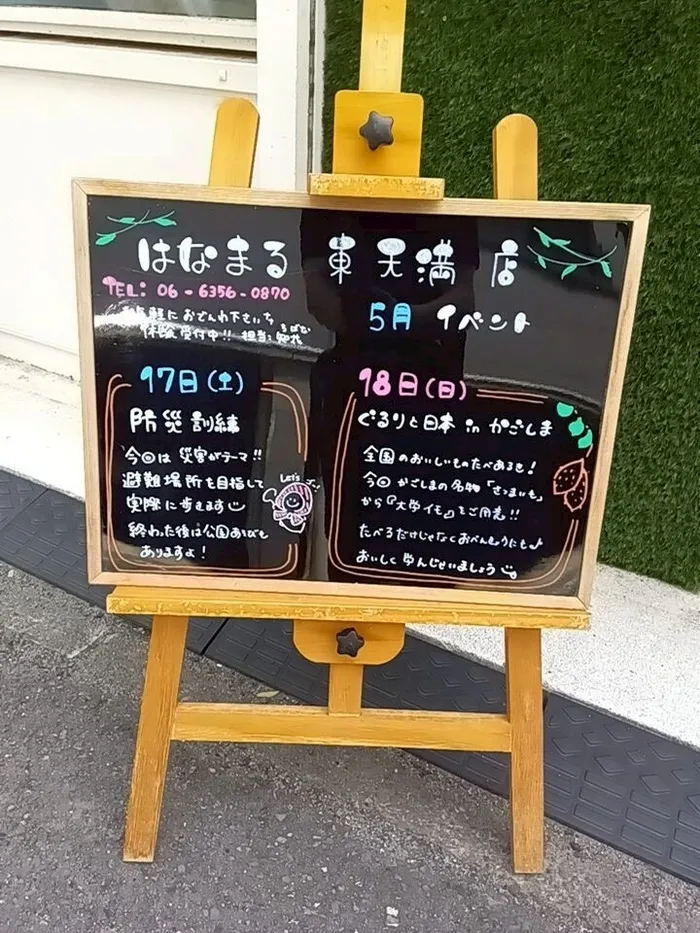 はなまる 東天満店
TEL: 06-6356-0870
気軽におでんわ下さいっ
体験受付中!! 担当:
5月 イベント
17日(土)
防災訓練
今回は災害がテーマ!!
避難場所を目指して
実際に歩きます
終わった後は公園あそびも
ありますよ!
Let's
18日(日)
ぐるりと日本 in かごしま
全国のおいしいものたべあるき!
今回かごしまの名物「さつまいも」
から『大学イモ』をご用意!!
たべるだけじゃなくおべんきょうにも♪
おいしく学んじゃいましょう